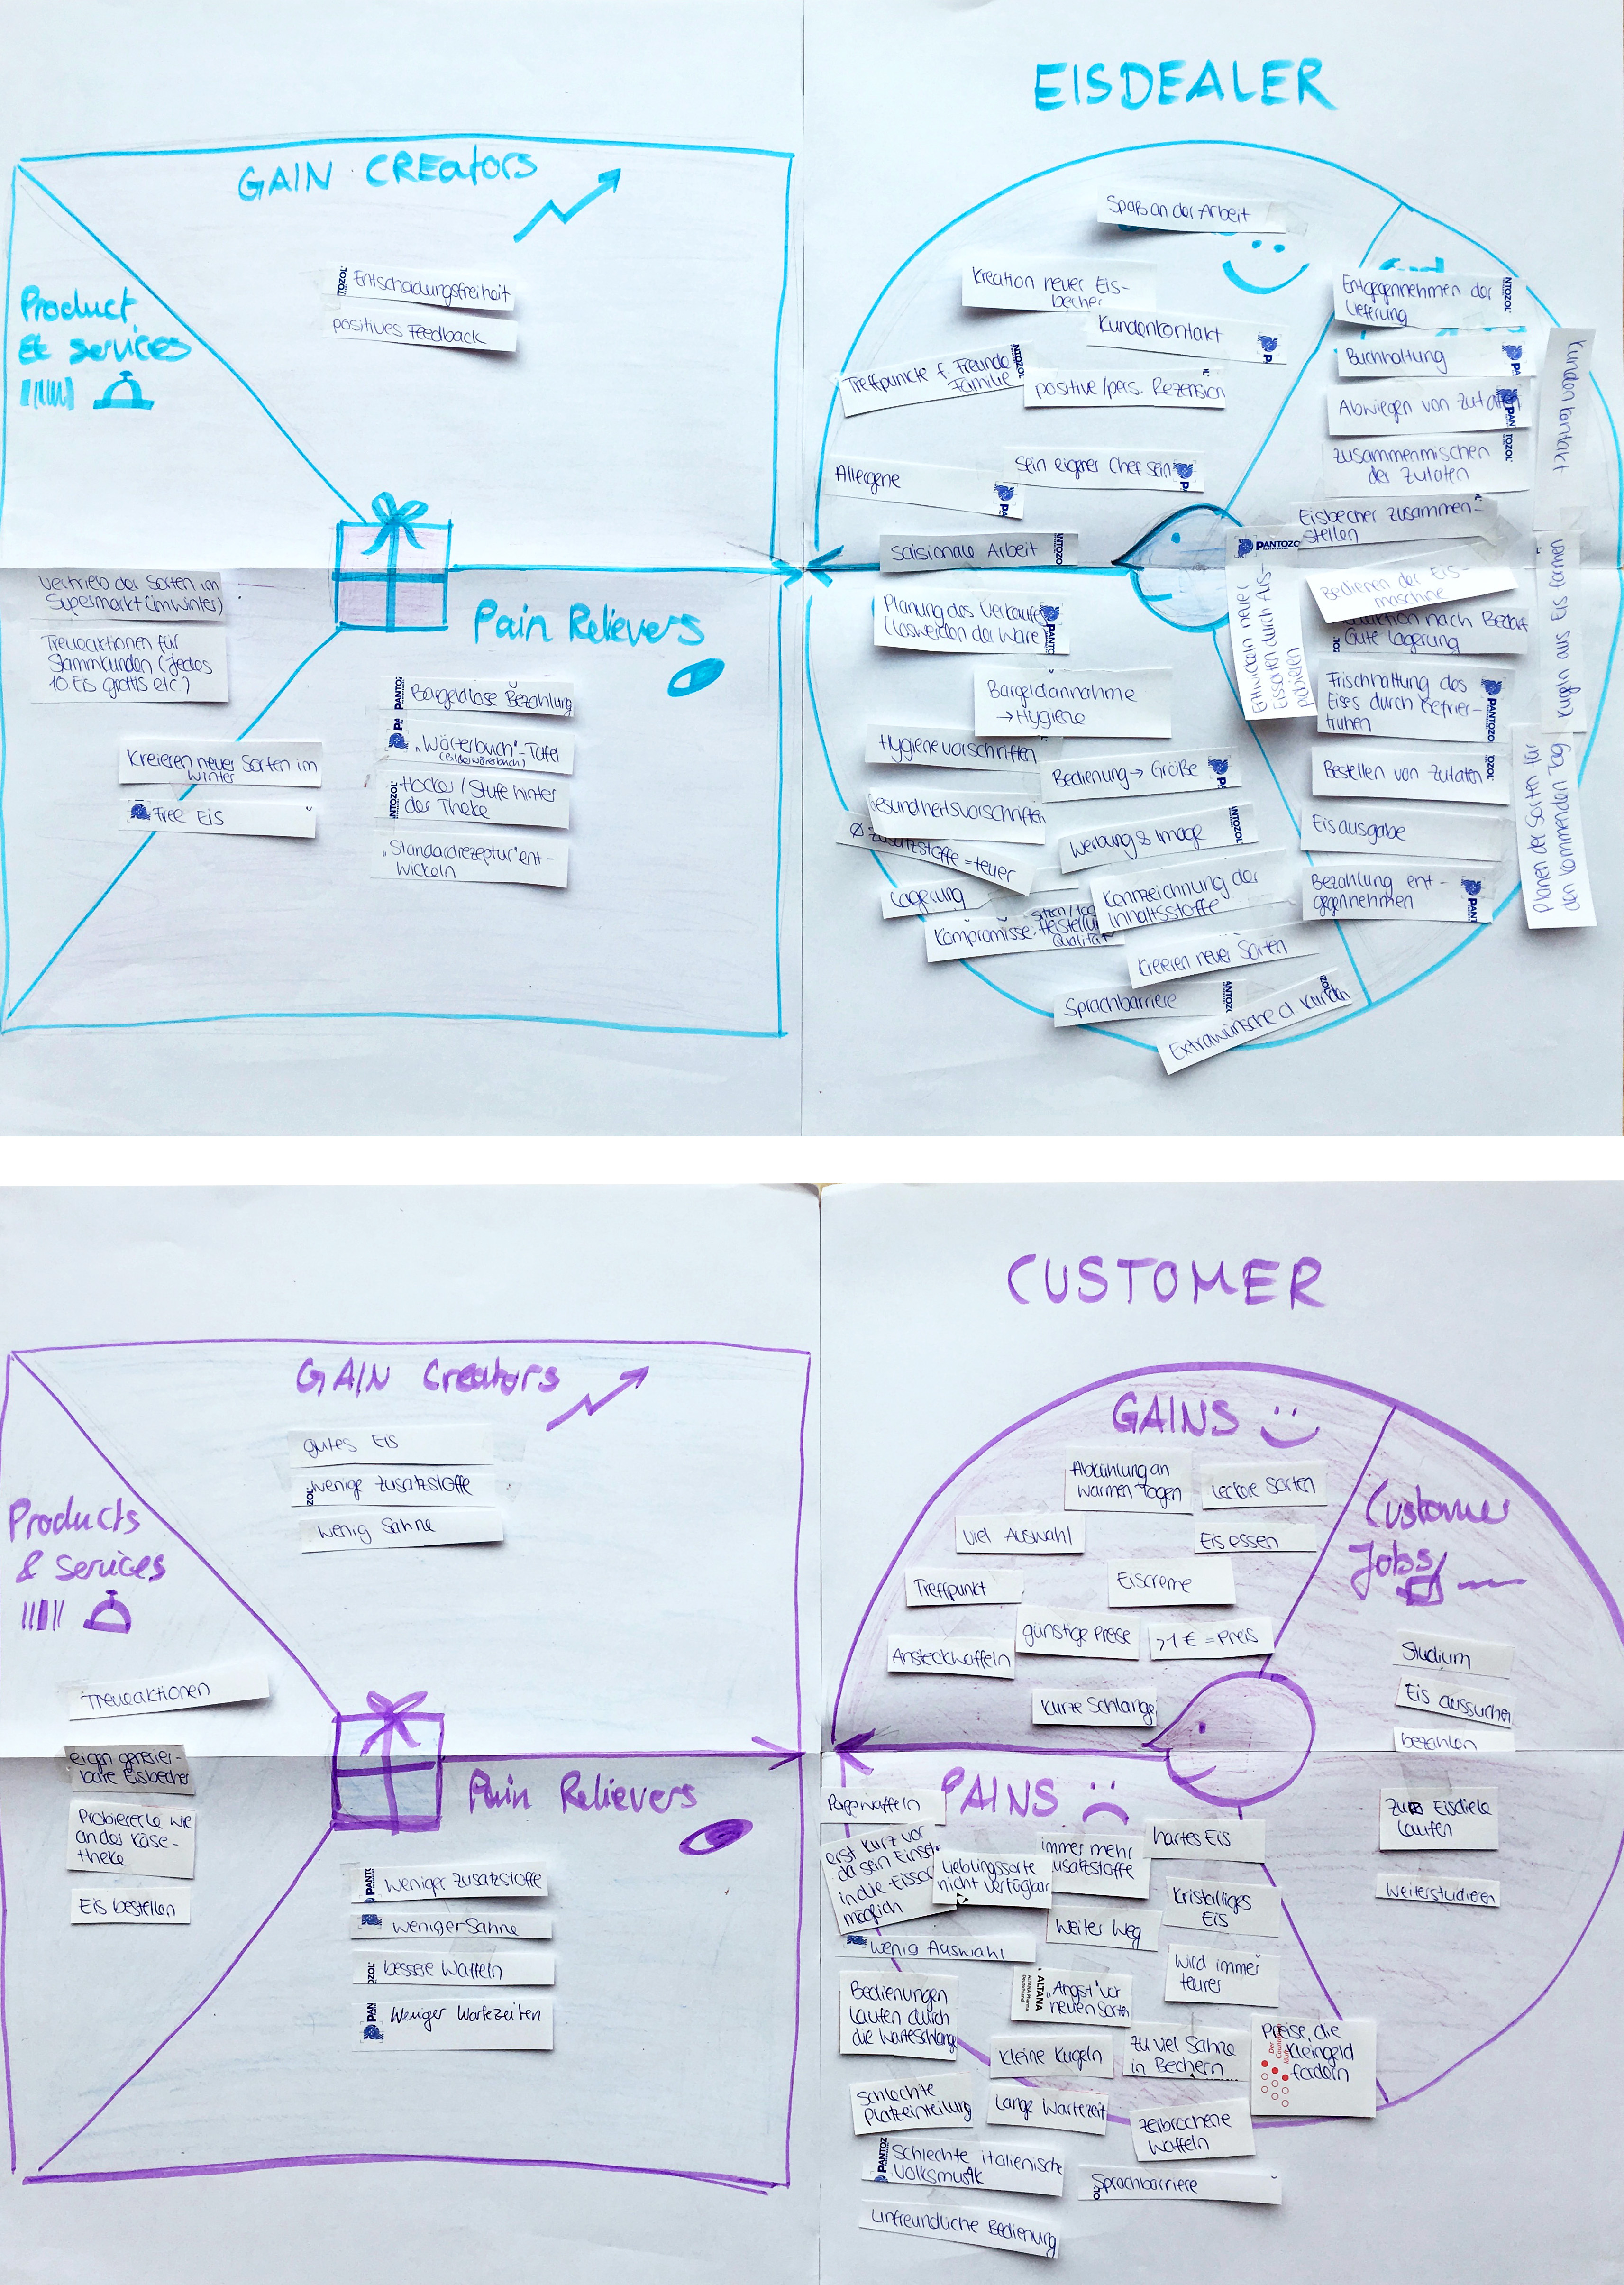 EISDEALER
GAIN CREators
Product
Et services
Entscheidungsfreiheit
positives Feedback
Vertrieb der Sorten im
Supermarkt (im Winter)
Treueaktionen für
Stammkunden (jedes
10. Eis gratis etc.)
Kreieren neuer Sorten im
Winter
Free Eis
Pain Relievers
Bargeldlose Bezahlung
"Wörterbuch"-Tafel
(Bilderwörterbuch)
Hocker / Stufe hinter
der Theke
"Standardrezeptur" ent-
wickeln
Spaß an der Arbeit
Kreation neuer Eis-
becher
Kundenkontakt
Treffpunkte f. Freunde
Familie
positive/pers. Rezension
Allergene
sein eigener Chef sein
saisionale Arbeit
Planung des Verkaufs
(Loswerden der Ware)
Bargeldannahme
→ Hygiene
Hygienevorschriften
Bedienung → Größe
Gesundheitsvorschriften
Ø Zusatzstoffe = teuer
Werbung & Image
Lagerung
Kennzeichnung der
Inhaltsstoffe
Kompromisse: Herstellung
Qualität
Kreieren neuer Sorten
Sprachbarriere
Extrawünsche d. Kunden
Entgegennehmen der
Lieferung
Buchhaltung
Abwiegen von Zutaten
Zusammenmischen
der Zutaten
Kundenkontakt
Eisbecher zusammen-
stellen
PANTOZO
Entwickeln neuer
Eissorten durch Aus-
probieren
Bedienen der Eis-
maschine
nach Bedarf
Gute Lagerung
Kugeln aus Eis formen
Frischhaltung des
Eises durch Gefrier-
truhen
Bestellen von Zutaten
Eisausgabe
Bezahlung ent-
gegennehmen
Planen der Sorten für
den kommenden Tag
CUSTOMER
GAIN Creators
Products
& services
gutes Eis
wenige Zusatzstoffe
wenig Sahne
Treueaktionen
eigen generier-
bare Eisbecher
Probiererle wie
an der Käse-
theke
Eis bestellen
Pain Relievers
weniger Zusatzstoffe
weniger Sahne
bessere Waffeln
Weniger Wartezeiten
GAINS
Abkühlung an
warmen Tagen
leckere Sorten
viel Auswahl
Eis essen
Treffpunkt
Eiscreme
günstige Preise
>1 € = Preis
Ansteckwaffeln
kurze Schlange
Customer
Jobs
Studium
Eis aussuchen
bezahlen
zur Eisdiele
laufen
weiterstudieren
PAINS
Pappwaffeln
erst kurz vor
in die Eissorte
möglich
Lieblingssorte
nicht verfügbar
immer mehr
Zusatzstoffe
hartes Eis
Kristalliges
Eis
Weiter Weg
wenig Auswahl
wird immer
teurer
Bedienungen
laufen durch
die Warteschlange
ALTANA
"Angst" vor
neuen Sorten
kleine Kugeln
zu viel Sahne
in Bechern
Preise, die
Kleingeld
fordern
schlechte
Platzeinteilung
lange Wartezeit
zerbrochene
Waffeln
Schlechte italienische
Volksmusik
Sprachbarriere
unfreundliche Bedienung